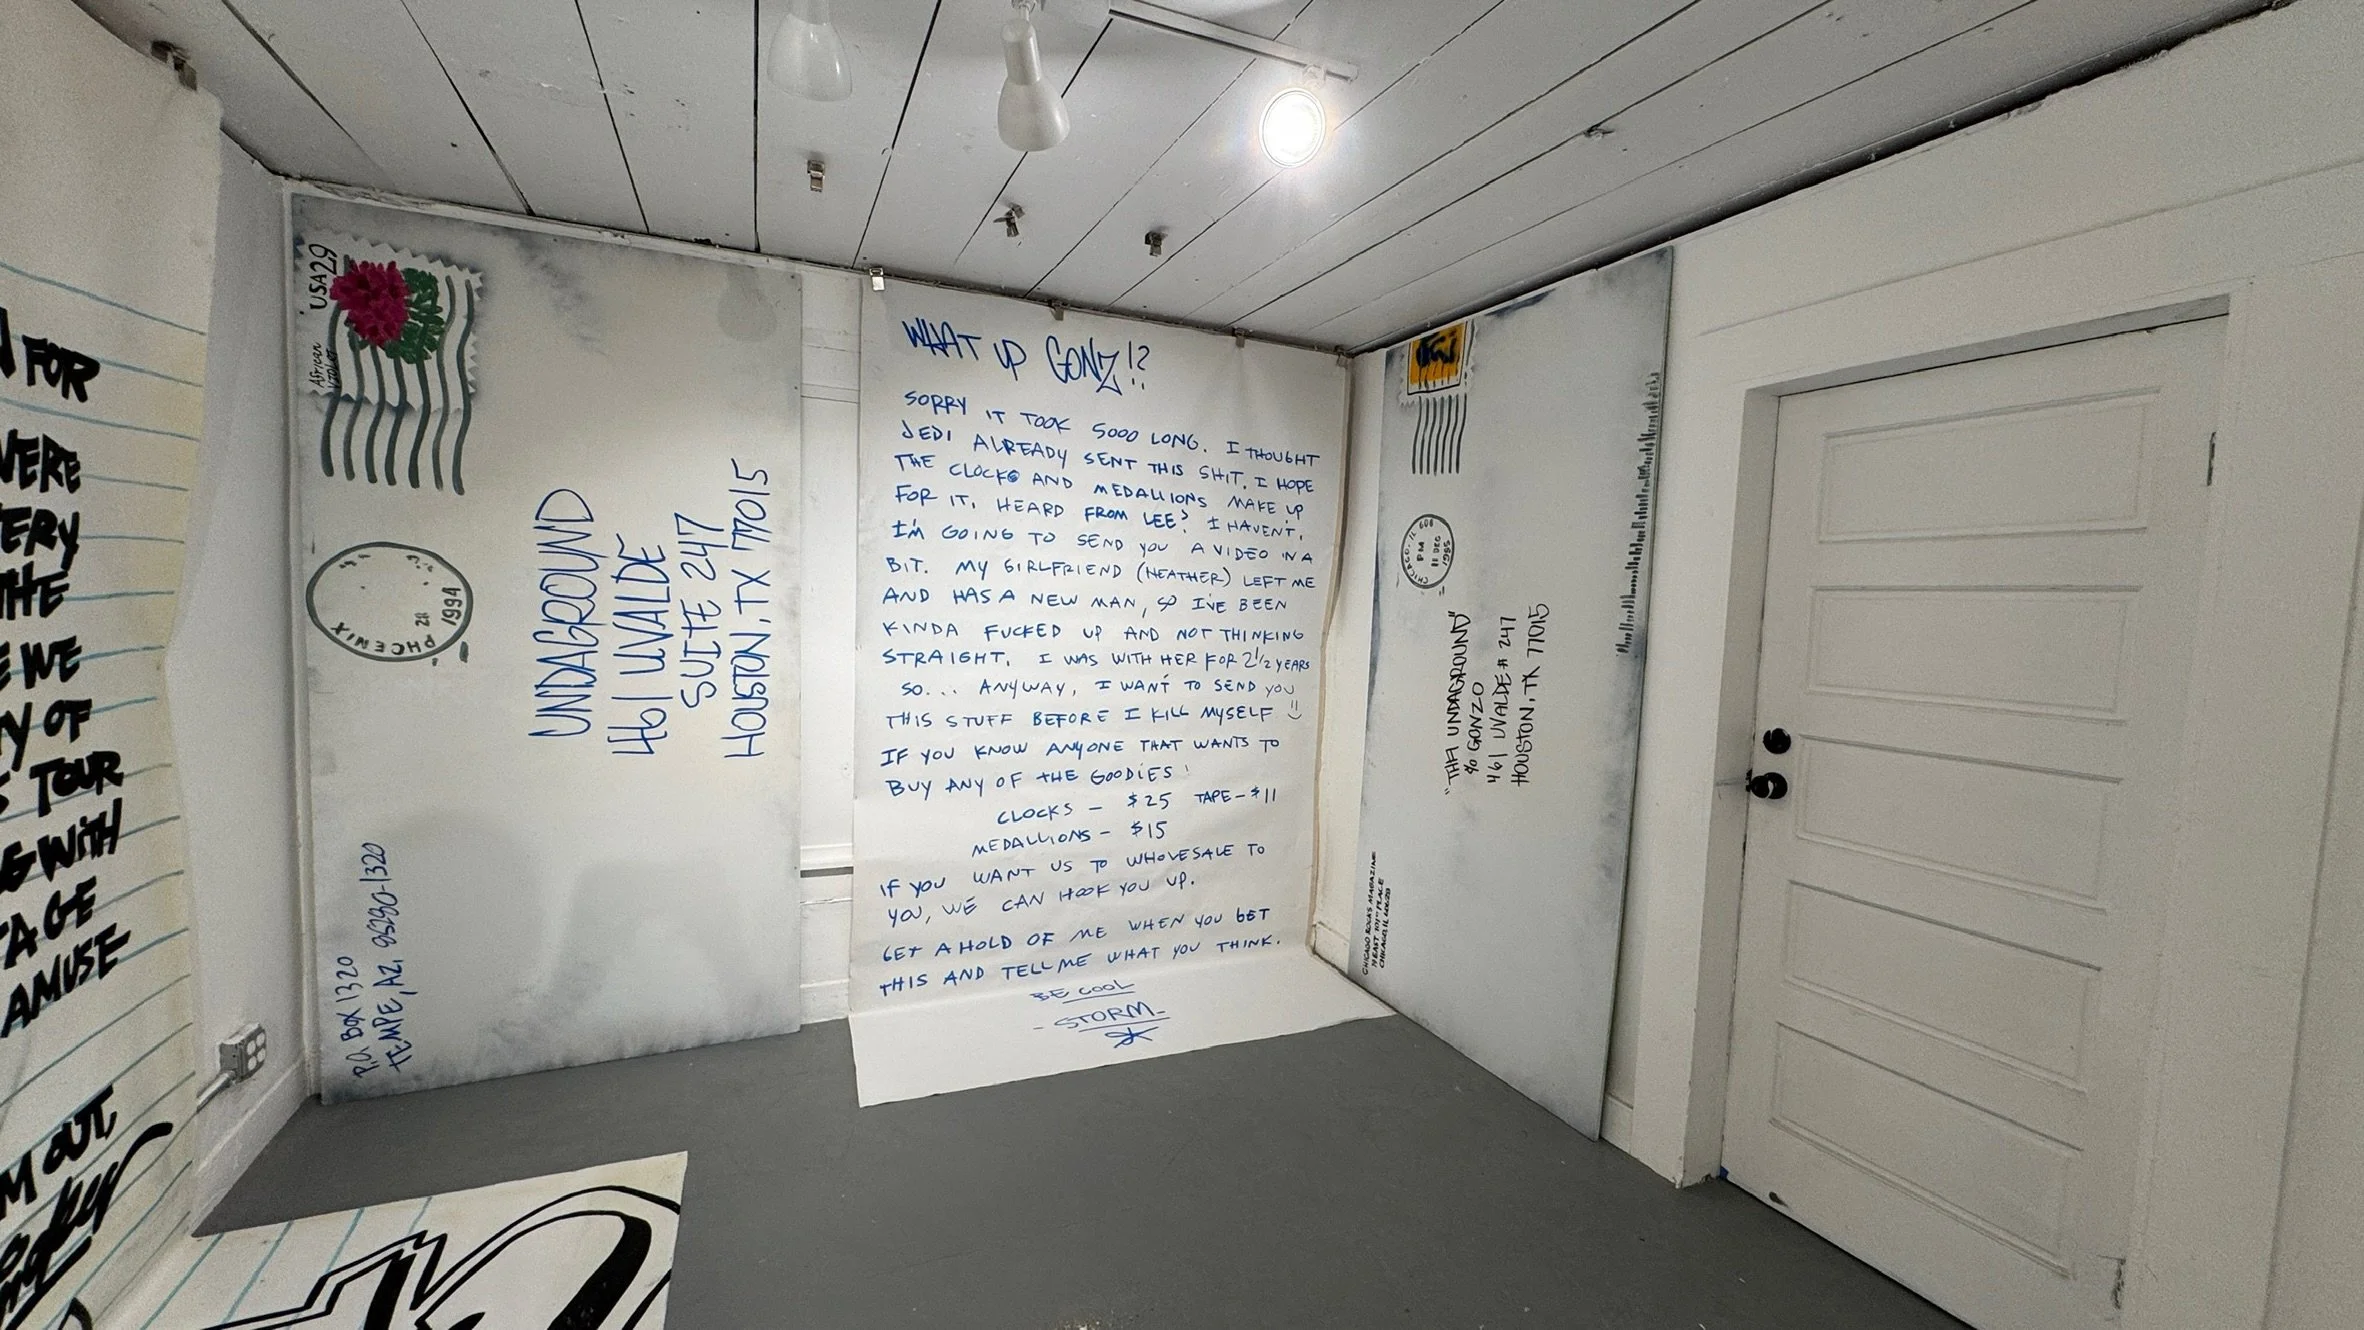 FOR
WERE
VERY
THE
WE
OF
TOUR
WITH
AMUSE
OUT,
USA29
African
Violet
PHOENIX
28
1994
UNDAGROUND
461 UVALDE
SUITE 247
HOUSTON, TX 77015
P.O. BOX 1320
TEMPE, AZ, 85280-1320
WHAT UP GONZ!?
SORRY IT TOOK SOOO LONG. I THOUGHT
JEDI ALREADY SENT THIS SHIT. I HOPE
THE CLOCKS AND MEDALLIONS MAKE UP
FOR IT. HEARD FROM LEE? I HAVEN'T.
I'M GOING TO SEND YOU A VIDEO IN A
BIT. MY GIRLFRIEND (HEATHER) LEFT ME
AND HAS A NEW MAN, SO I'VE BEEN
KINDA FUCKED UP AND NOT THINKING
STRAIGHT. I WAS WITH HER FOR 2 1/2 YEARS
SO... ANYWAY, I WANT TO SEND YOU
THIS STUFF BEFORE I KILL MYSELF
IF YOU KNOW ANYONE THAT WANTS TO
BUY ANY OF THE GOODIES:
CLOCKS - $25 TAPE - $11
MEDALLIONS - $15
IF YOU WANT US TO WHOLESALE TO
YOU, WE CAN HOOK YOU UP.
GET A HOLD OF ME WHEN YOU GET
THIS AND TELL ME WHAT YOU THINK.
BE COOL
- STORM -
CHICAGO, IL 606
PM
11 DEC
1995
"THA UNDAGROUND"
% GONZO
461 UVALDE # 247
HOUSTON, TX 77015
CHICAGO ROCKS MAGAZINE
EAST 101ST PLACE
CHICAGO, IL 60628